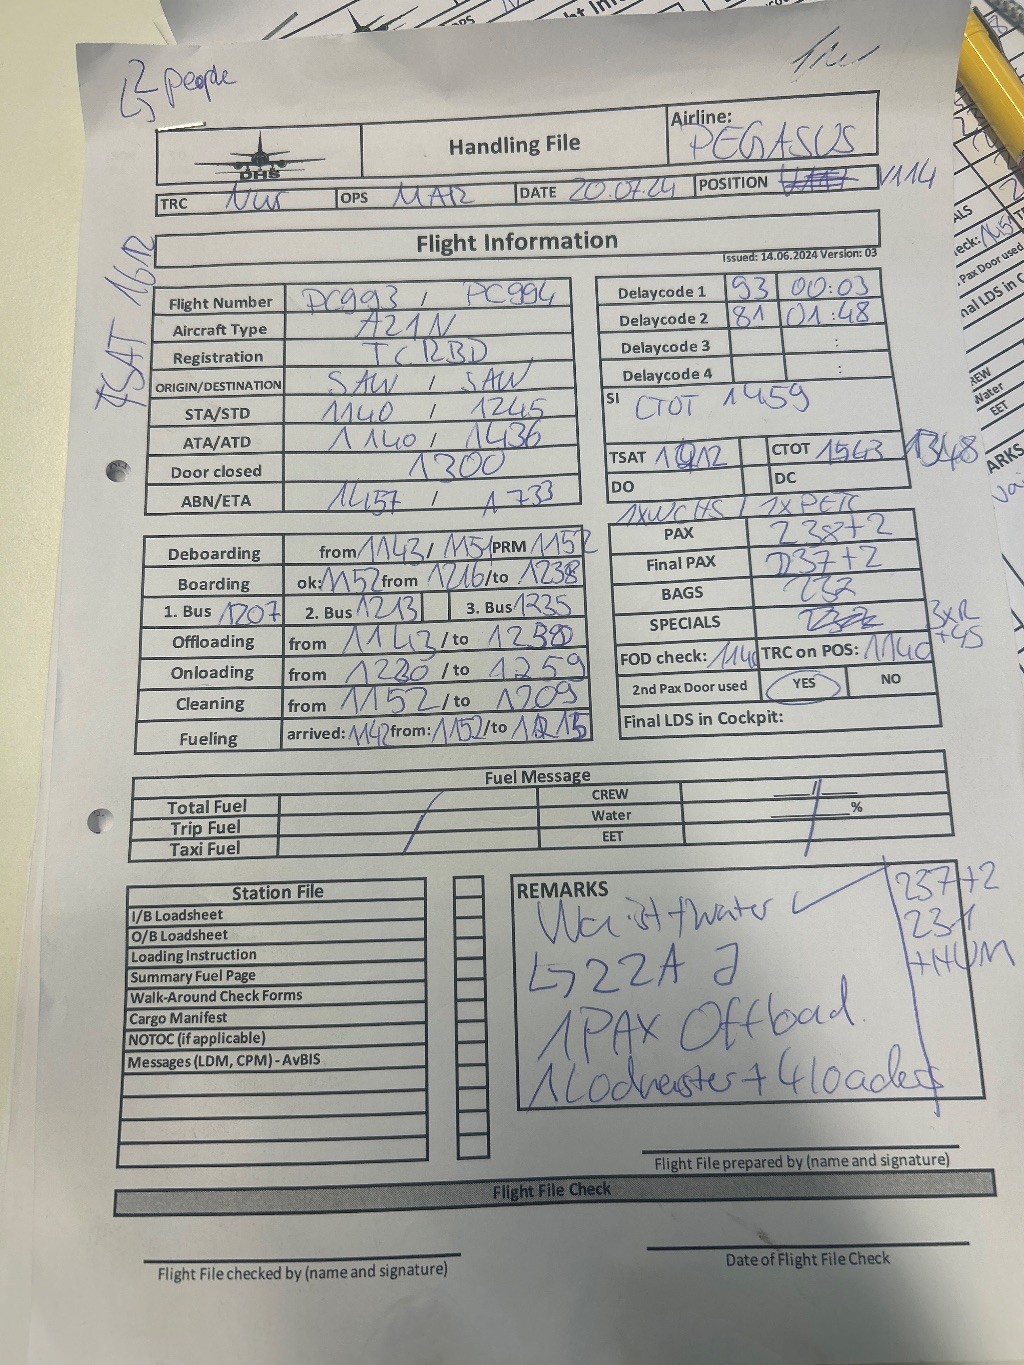 2 people
DHS
Handling File
Airline:
PEGASUS
TRC Nur OPS MAR DATE 20.07.24 POSITION V114
TSAT 1612
Flight Information
Issued: 14.06.2024 Version: 03
Flight Number PC993 / PC994
Aircraft Type A21N
Registration TCRBD
ORIGIN/DESTINATION SAW / SAW
STA/STD 1140 / 1245
ATA/ATD 1140 / 1436
Door closed 1300
ABN/ETA 1457 / 1733
Delaycode 1 93 00:03
Delaycode 2 81 01:48
Delaycode 3 :
Delaycode 4 :
SI CTOT 1459
TSAT CTOT 1543 1348
DO DC
1xWCHS / 1xPETC
PAX 238+2
Final PAX 237+2
BAGS 232
SPECIALS 3xR +4S
FOD check: 1140 TRC on POS: 1140
2nd Pax Door used YES NO
Final LDS in Cockpit:
Deboarding from 1143 / 1151 PRM 1152
Boarding ok: 1152 from 1216 /to 1238
1. Bus 1207 2. Bus 1213 3. Bus 1235
Offloading from 1143 /to
Onloading from 1230 /to 1259
Cleaning from 1152 /to 1209
Fueling arrived: 1142 from: 1152 /to
Fuel Message
Total Fuel CREW /
Trip Fuel Water %
Taxi Fuel EET
Station File
I/B Loadsheet
O/B Loadsheet
Loading Instruction
Summary Fuel Page
Walk-Around Check Forms
Cargo Manifest
NOTOC (if applicable)
Messages (LDM, CPM) - AvBIS
REMARKS
water
22A
1 PAX Offload
1 Lodmeister + 4 loaders
237+2
231
+HUM
Flight File prepared by (name and signature)
Flight File Check
Flight File checked by (name and signature)
Date of Flight File Check